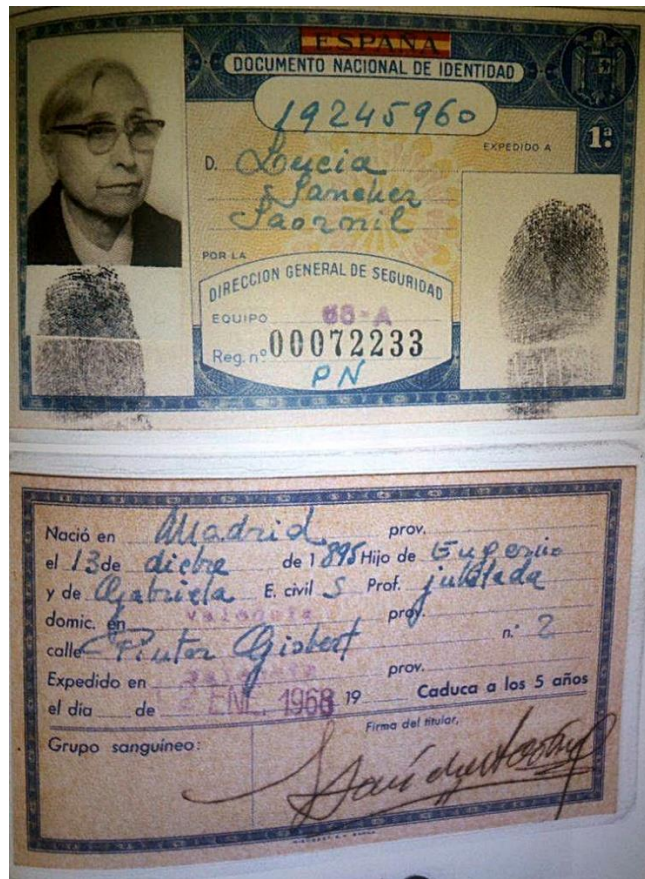 ESPAÑA
DOCUMENTO NACIONAL DE IDENTIDAD
19245960
EXPEDIDO A
1ª
D. Lucia
Sanchez
Saornil
POR LA
DIRECCION GENERAL DE SEGURIDAD
EQUIPO 68-A
Reg. nº 00072233
PN
Nació en Madrid prov.
el 13 de dicbre de 1895 Hijo de Eugenio
y de Gabriela E. civil S Prof. jubilada
domic. en Valencia prov.
calle Pintor Gisbert n.º 2
Expedido en Valencia prov.
el dia de ENE. 1968 19 Caduca a los 5 años
Grupo sanguineo:
Firma del titular,